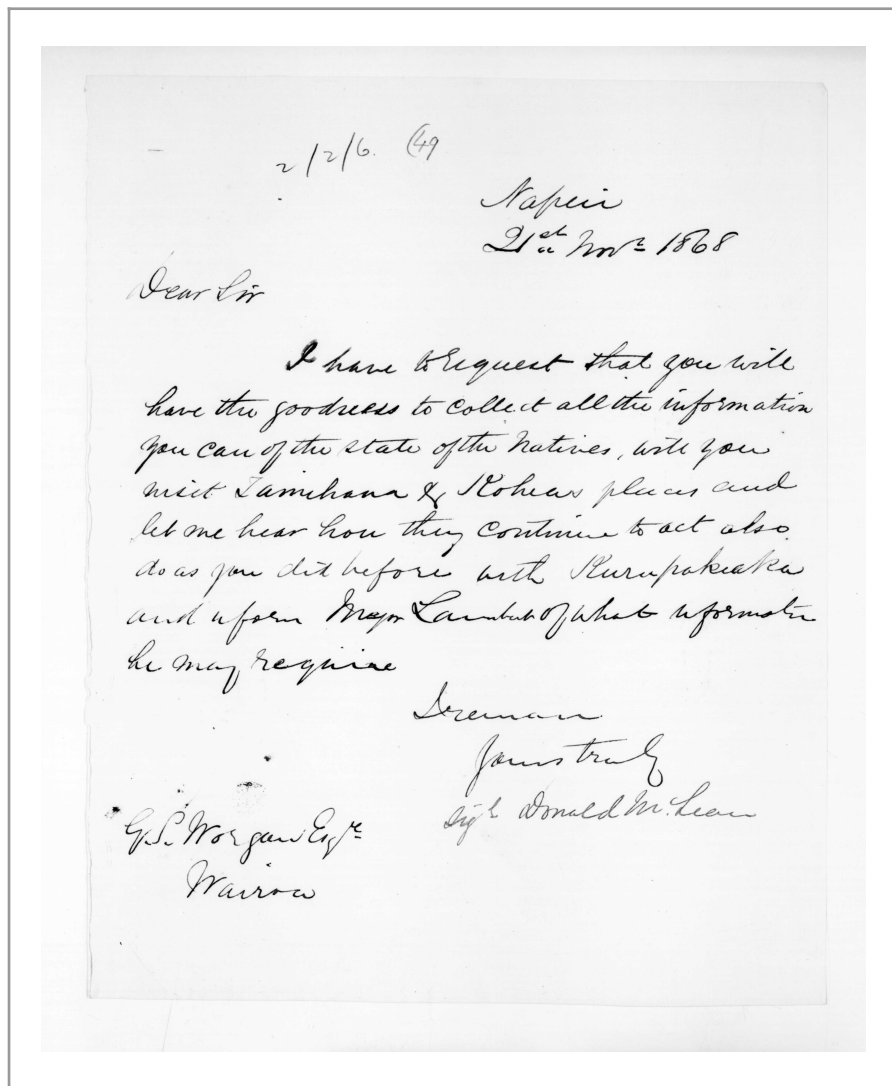 2/2/6. (49
Napier
21st Novr 1868
Dear Sir
I have to request that you will
have the goodness to collect all the information
you can of the state of the Natives, will you
visit Tamihana & Koheas places and
let me hear how they continue to act also
do as you did before with Kurupakiaka
and inform Major Lambert of what informatn
he may require
I remain
Yours truly
Sigd Donald McLean
G.S. Worgan Esqre
Wairoa